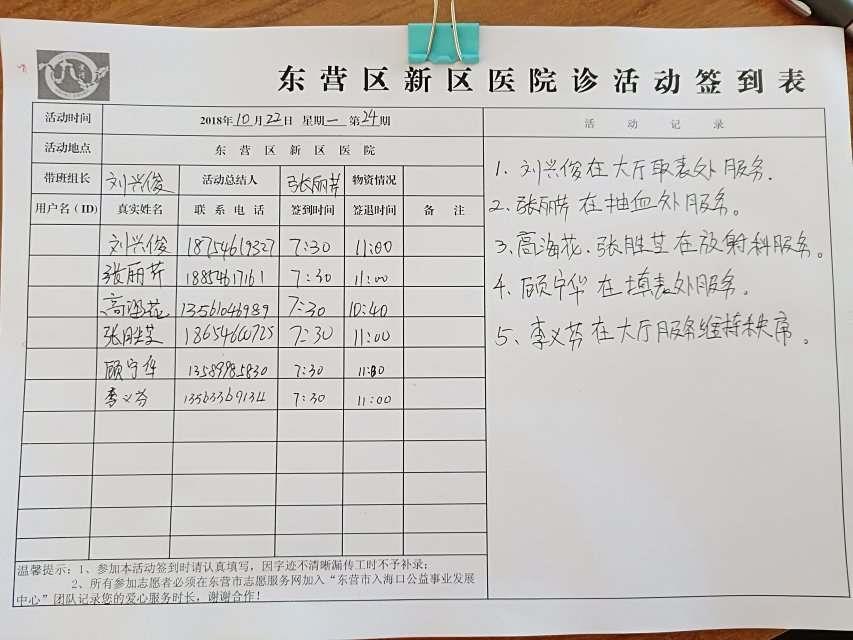 东营区新区医院诊活动签到表
活动时间 2018年10月22日 星期一 第24期
活动地点 东营区新区医院
带班组长 刘兴俊 活动总结人 张丽芹 物资情况
用户名(ID) 真实姓名 联系电话 签到时间 签退时间 备注
刘兴俊 18754619327 7:30 11:00
张丽芹 18854617161 7:30 11:00
高海花 13561046989 7:30 10:40
张胜芝 18654660725 7:30 11:00
顾宁华 13589985830 7:30 11:30
李义芬 13563369134 7:30 11:00
温馨提示:1、参加本活动签到时请认真填写,因字迹不清晰漏传工时不予补录;
2、所有参加志愿者必须在东营市志愿服务网加入“东营市入海口公益事业发展
中心”团队记录您的爱心服务时长,谢谢合作!
活动记录
1. 刘兴俊在大厅取表处服务.
2、张丽芹在抽血处服务。
3、高海花、张胜芝在放射科服务。
4、顾宁华在填表处服务。
5、李义芬在大厅服务维持秩序。